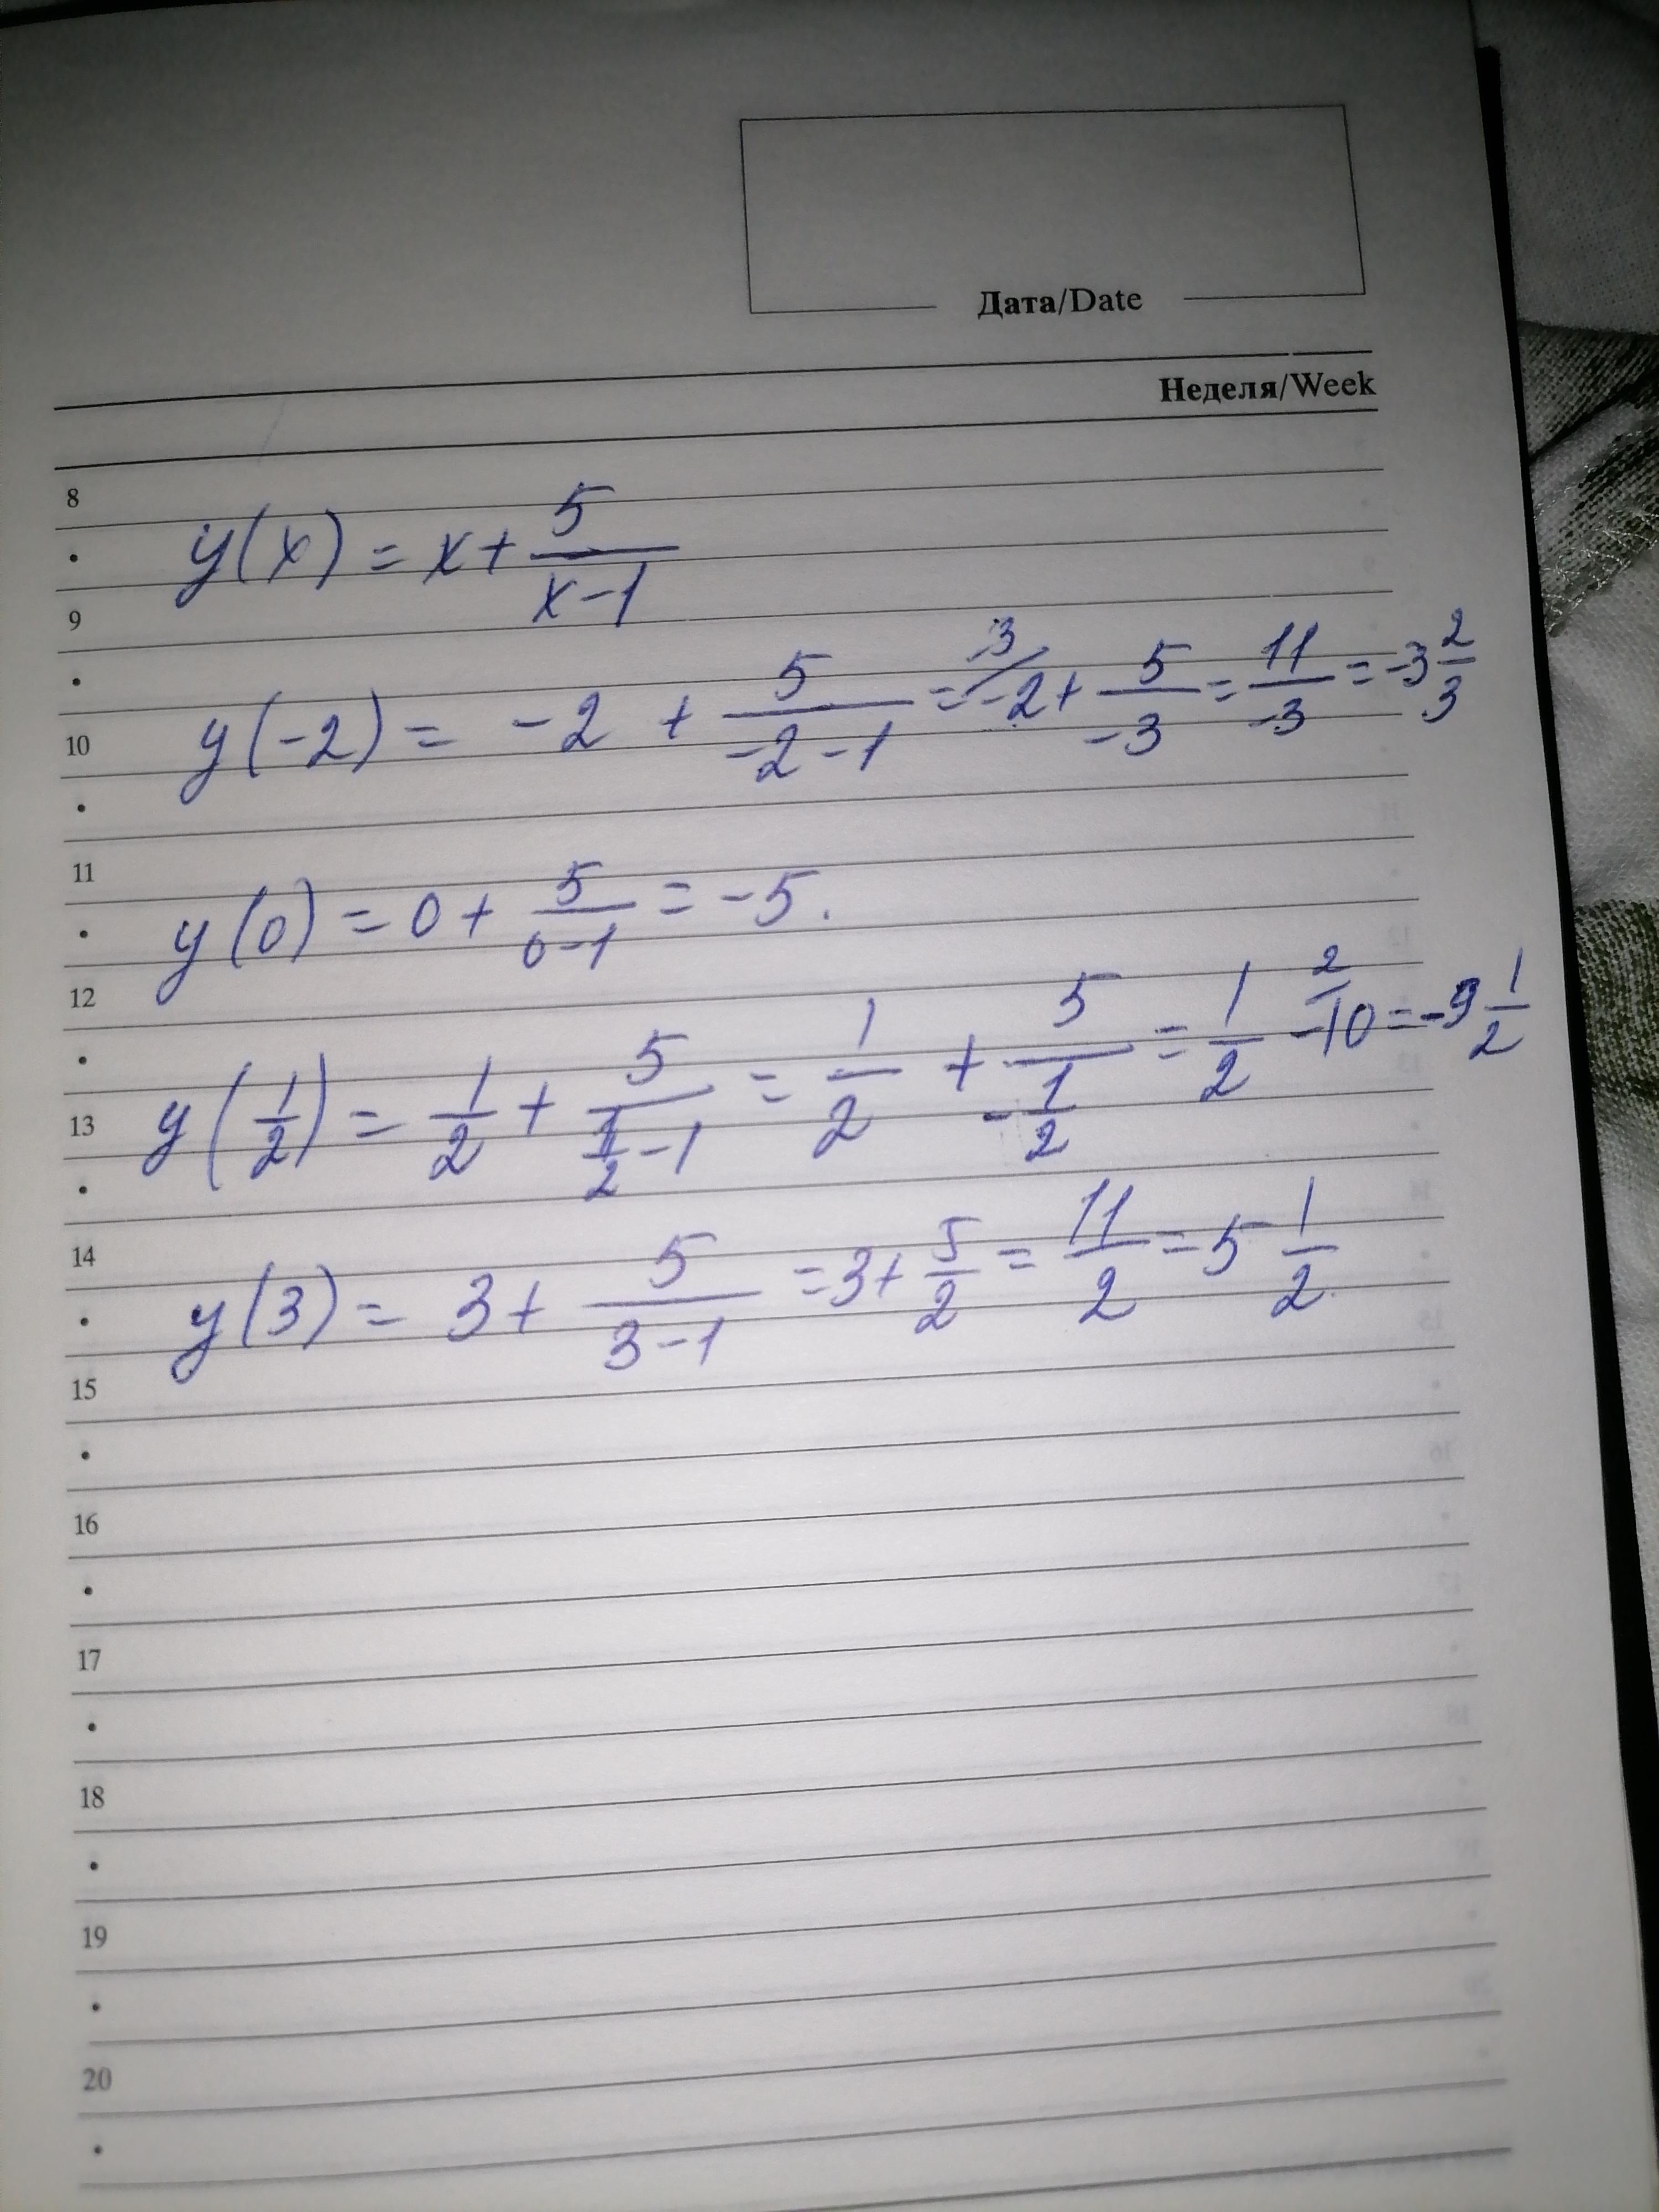 Дата/Date
Неделя/Week
8
y(x) = x + 5/(x-1)
9
y(-2) = -2 + 5/(-2-1) = 3/ -2 + 5/-3 = 11/-3 = -3 2/3
10
11
y(0) = 0 + 5/(0-1) = -5.
12
y(1/2) = 1/2 + 5/(1/2 -1) = 1/2 + 5/(-1/2) = 1/2 2/ -10 = -9 1/2
13
14
y(3) = 3 + 5/(3-1) = 3 + 5/2 = 11/2 = 5 1/2
15
16
17
18
19
20